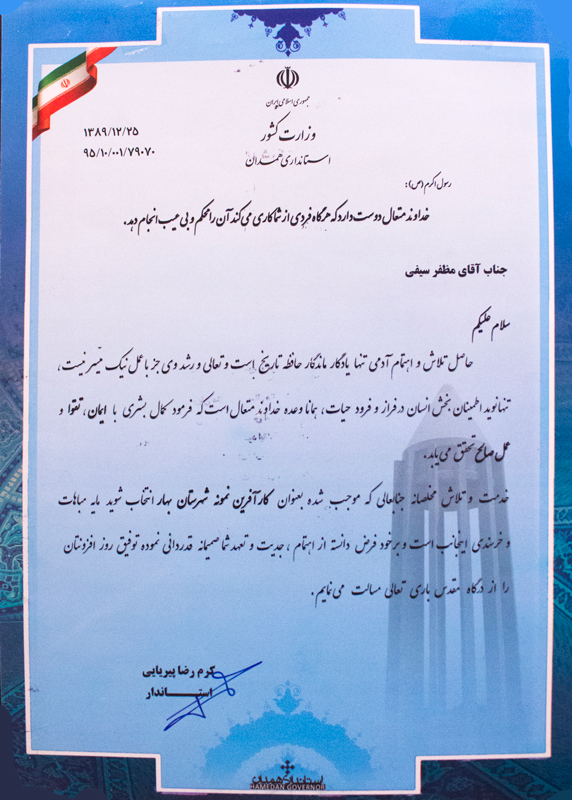 جمهوری اسلامی ایران
وزارت کشور
استانداری همدان
۱۳۸۹/۱۲/۲۵
۹۵/۱۰/۰۰۱/۷۹۰۷۰
رسول اکرم (ص):
خداوند متعال دوست دارد که هرگاه فردی از شما کاری می‌کند آن را محکم و بی عیب انجام دهد.
جناب آقای مظفر سیفی
سلام علیکم
حاصل تلاش و اهتمام آدمی تنها یادگار ماندگار حافظه تاریخ است و تعالی و رشد وی جز با عمل نیک میّسر نیست،
تنها نوید اطمینان بخش انسان در فراز و فرود حیات، همانا وعده خداوند متعال است که فرمود کمال بشری با ایمان، تقوا و
عمل صالح تحقق می‌یابد.
خدمت و تلاش مخلصانه جنابعالی که موجب شده بعنوان کارآفرین نمونه شهرستان بهار انتخاب شوید مایه مباهات
و خرسندی اینجانب است و برخود فرض دانسته از اهتمام ، جدیت و تعهد شما صمیمانه قدردانی نموده توفیق روز افزونتان
را از درگاه مقدس باری تعالی مسالت می‌نمایم.
کرم رضا پیریایی
استاندار
استانداری همدان
HAMEDAN GOVERNOR